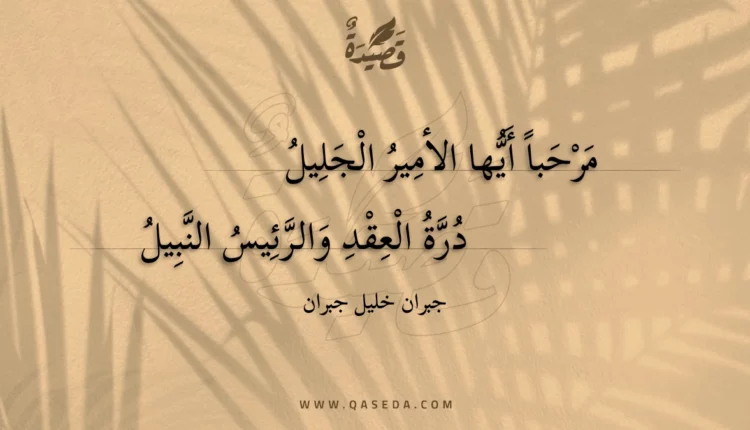 قَصِيدَةٌ
مَرْحَباً أَيُّها الأمِيرُ الْجَلِيلُ
دُرَّةُ الْعِقْدِ وَالرَّئِيسُ النَّبِيلُ
جبران خليل جبران
WWW.QASEDA.COM